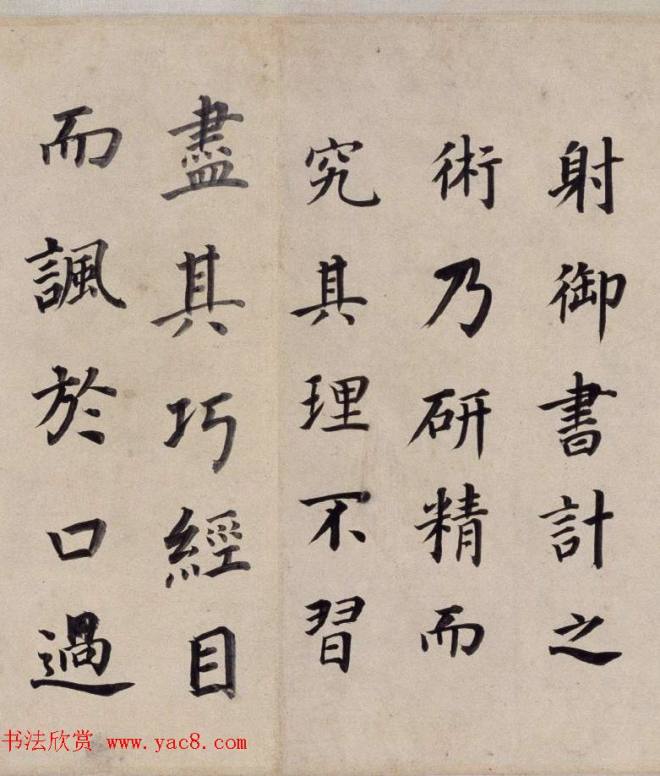 射御書計之
術乃研精而
究其理不習
盡其巧經目
而諷於口過
书法欣赏 www.yac8.com